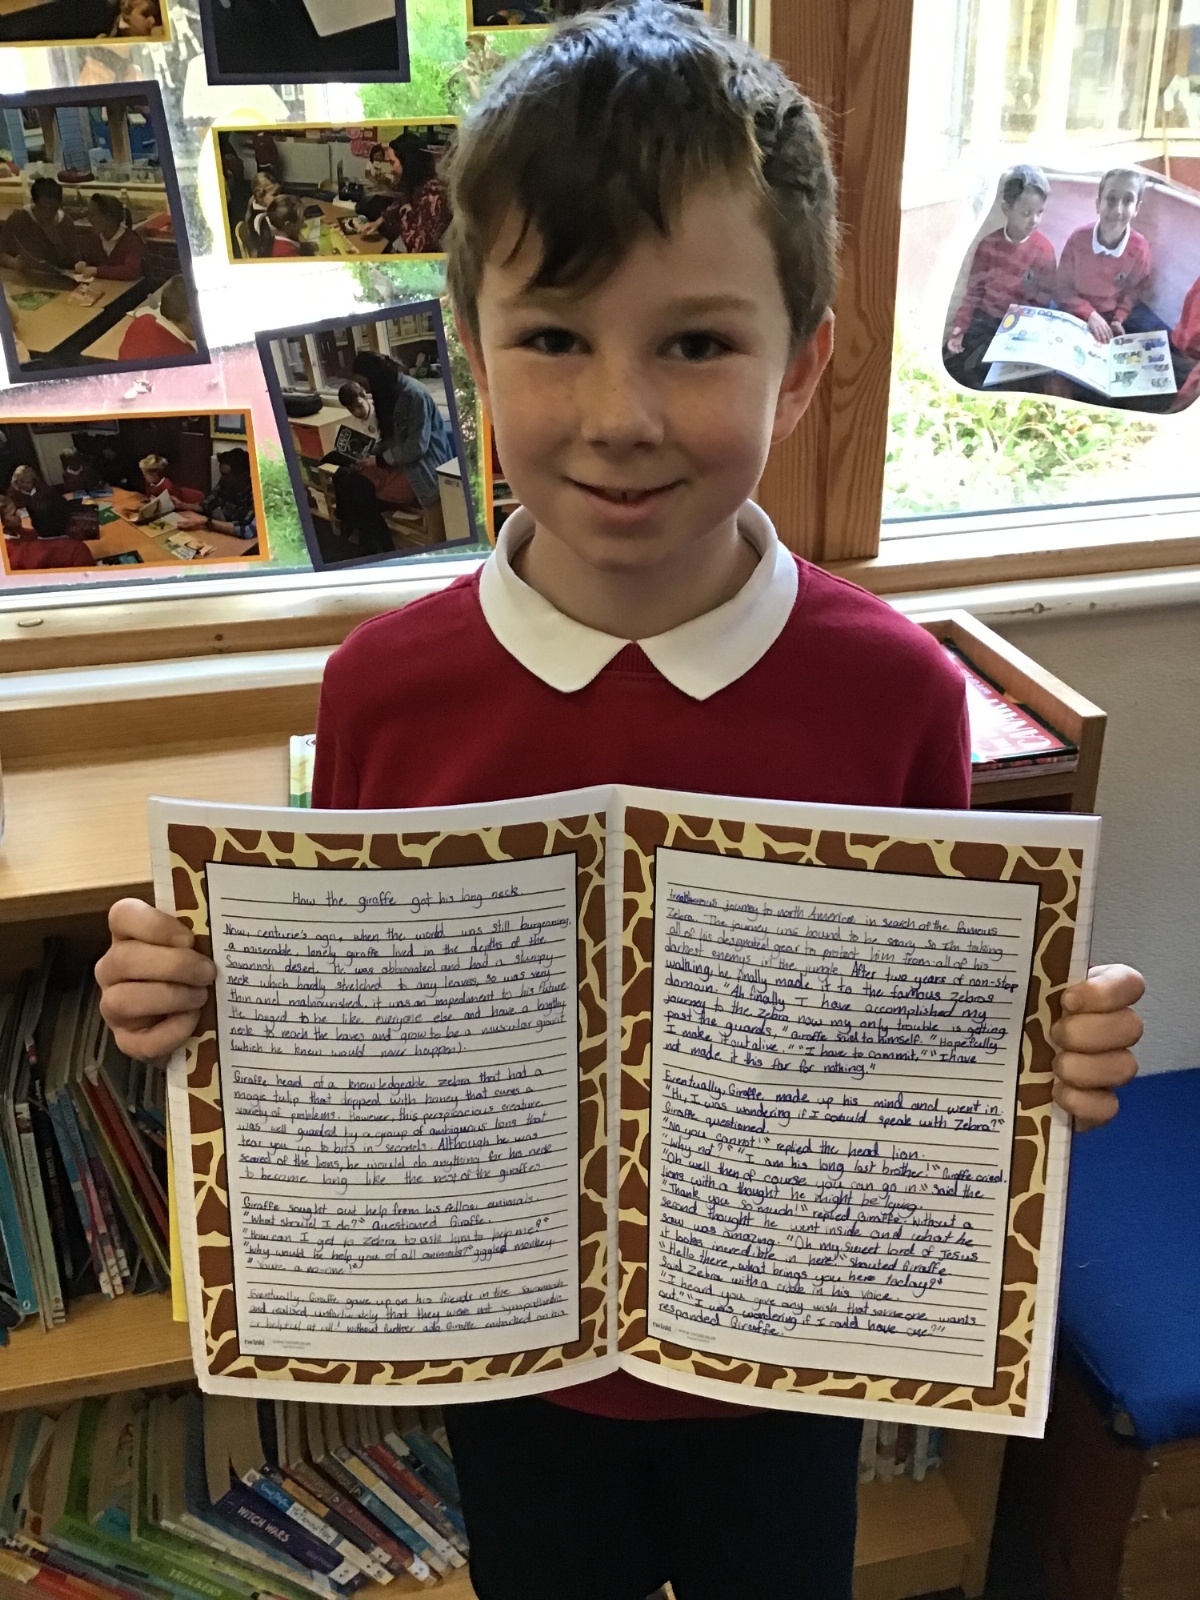 How the giraffe got his long neck.
Now, centurie's ago, when the world was still burgeoning,
a miserable, lonely giraffe lived in the depths of the
Savannah desert. He was abbonated and had a stumpy
neck which hardly stretched to any leaves, so was very
thin and malnourished, it was an impediment to his future
He longed to be like everyone else and have a lengthy
neck to reach the leaves and grow to be a muscular giant
(which he knew would never happen).
Giraffe heard of a knowledgeable zebra that had a
magic tulip that dripped with honey that cures a
variety of problems. However, this perspicacious creature
was well guarded by a group of ambiguous lions that
tear you up to bits in seconds. Although he was
scared of the lions, he would do anything for his neck
to become long like the rest of the giraffes.
Giraffe sought out help from his fellow animals.
"What should I do?" Questioned Giraffe.
"How can I get to Zebra to ask him to help me?"
"Why would he help you of all animals?" giggled monkey
"You're a no-one!"
Eventually, Giraffe gave up on his friends in the Savannah
and realised unfortunately that they were not sympathetic
or helpful at all! Without further ado, Giraffe embarked on his
twinkl
journey to north America in search of the famous
Zebra. "The journey was bound to be scary so I'm taking
all of his designated gear to protect him from all of his
darkest enemys in the jungle. After two years of non-stop
walking, he finally made it to the famous Zebras
domain. "Ah finally I have accomplished my
journey to the Zebra now my only trouble is getting
past the guards," Giraffe said to himself. "Hopefully
I make it out alive." "I have to commit," "I have
not made it this far for nothing."
Eventually, Giraffe made up his mind and went in.
"Hi, I was wondering if I could speak with Zebra?"
Giraffe questioned.
"No you cannot!" replied the head lion.
"Why not?" "I am his long lost brother!" Giraffe cried.
"Oh well then of course you can go in." Said the
lions with a thought he might be lying.
"Thank you so much!" replied Giraffe. Without a
second thought he went inside and what he
saw was amazing. "Oh my sweet lord of Jesus
it looks incredible in here!" shouted Giraffe.
"Hello there, what brings you here today?"
Said Zebra with a crack in his voice.
"I heard you give any wish that someone wants
out" "I was wondering if I could have one?"
responded Giraffe.
twinkl
WITCH WARS
TRUCKERS